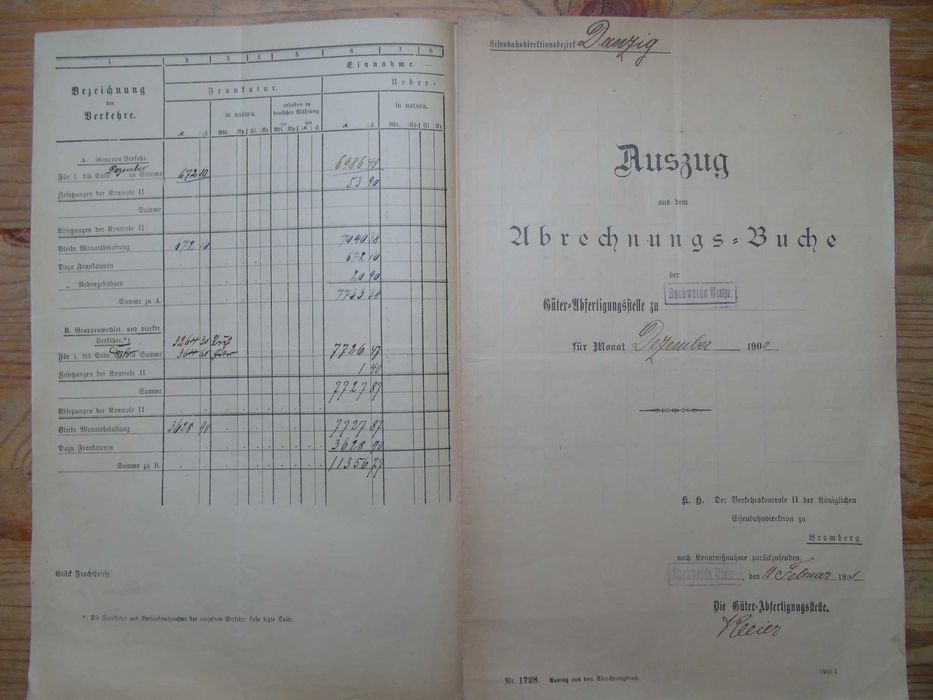 1 2 3 4 5 6 7 8
Einnahme.
Bezeichnung
der
Verkehre.
Frankatur.
Ueber-
in natura.
erhoben in
deutscher Währung
in natura.
A. Gruppen-Verkehr.
Für 1. bis Ende Dezember in Summe 672 10 6986 48
Zusetzungen der Kontrole II 53 90
Summe
Absetzungen der Kontrole II
Bleibt Monatsbelastung 672 10 7040 38
Dazu Frankaturen 672 10
" Nebengebühren 20 90
Summe zu A. 7733 38
B. Gruppenwechsel- und direkte
Verkehre.*) 3264 30
Für 1. bis Ende in Summe 364 60 7726 47
Zusetzungen der Kontrole II 1 40
Summe 7727 87
Absetzungen der Kontrole II
Bleibt Monatsbelastung 3628 90 7727 87
Dazu Frankaturen 3628 90
Summe zu B. 11356 77
Stück Frachtbriefe.
*) Die Frankatur und Nachnahme der einzelnen Verkehre siehe letzte Seite.
Eisenbahndirektionsbezirk Danzig
Auszug
aus dem
Abrechnungs-Buche
der
Güter-Abfertigungsstelle zu Buchwalde Westpr.
für Monat Dezember 1900
K. H. Der Verkehrskontrole II der Königlichen
Eisenbahndirektion zu
Bromberg
nach Kenntnißnahme zurückzusenden.
Buchwalde Westpr., den 11 Februar 1901
Die Güter-Abfertigungsstelle.
Nr. 1728. Auszug aus dem Abrechnungsbuch.